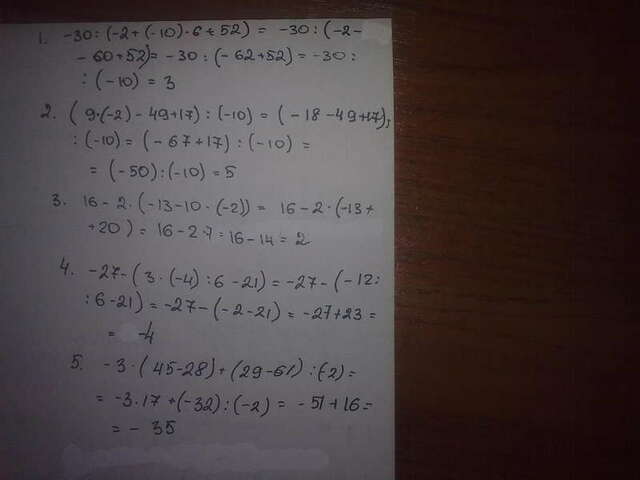 1. -30 : (-2 + (-10) · 6 + 52) = -30 : (-2 -
- 60 + 52) = -30 : (-62 + 52) = -30 :
: (-10) = 3
2. (9·(-2) - 49 + 17) : (-10) = (-18 - 49 + 17) :
: (-10) = (-67 + 17) : (-10) =
= (-50) : (-10) = 5
3. 16 - 2 · (-13 - 10 · (-2)) = 16 - 2 · (-13 +
+ 20) = 16 - 2 · 7 = 16 - 14 = 2
4. -27 - (3 · (-4) : 6 - 21) = -27 - (-12 :
: 6 - 21) = -27 - (-2 - 21) = -27 + 23 =
= -4
5. -3 · (45 - 28) + (29 - 61) : (-2) =
= -3 · 17 + (-32) : (-2) = -51 + 16 =
= - 35